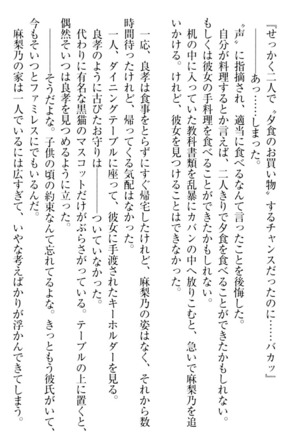 『せっかく二人で〝夕食のお買い物〟するチャンスだったのに……バカッ』
――あっ……しまった。
〝声〟に指摘され、適当に食べるなんて言ったことを後悔した。
自分が料理するとか言えば、二人きりで夕食を食べることができたかもしれない。
もしくは彼女の手料理を食べることができたかもしれない。
机の中に入っていた教科書類を乱暴にカバンの中へ放りこむと、急いで麻梨乃を追
いかける。けれど、彼女を見つけることはできなかった。

一応、良孝は食事をとらずにすぐ帰宅したけれど、麻梨乃の姿はなく、それから数
時間待ったけれど、帰ってくる気配はなかった。
一人、ダイニングテーブルに座って、彼女に手渡されたキーホルダーを見る。
良孝のように古びたお守りは――ついていなかった。
代わりに有名な黒猫のマスコットだけがぶらさがっている。テーブルの上に置くと、
偶然そいつは良孝を見つめるように立った。
――そうだよな。子供の頃の約束なんて忘れてるよな。きっともう彼氏がいて、
今もそいつとファミレスにでもいるんだ。
麻梨乃の家は一人でいるには広すぎて、いやな考えばかりが浮かんできてしまう。